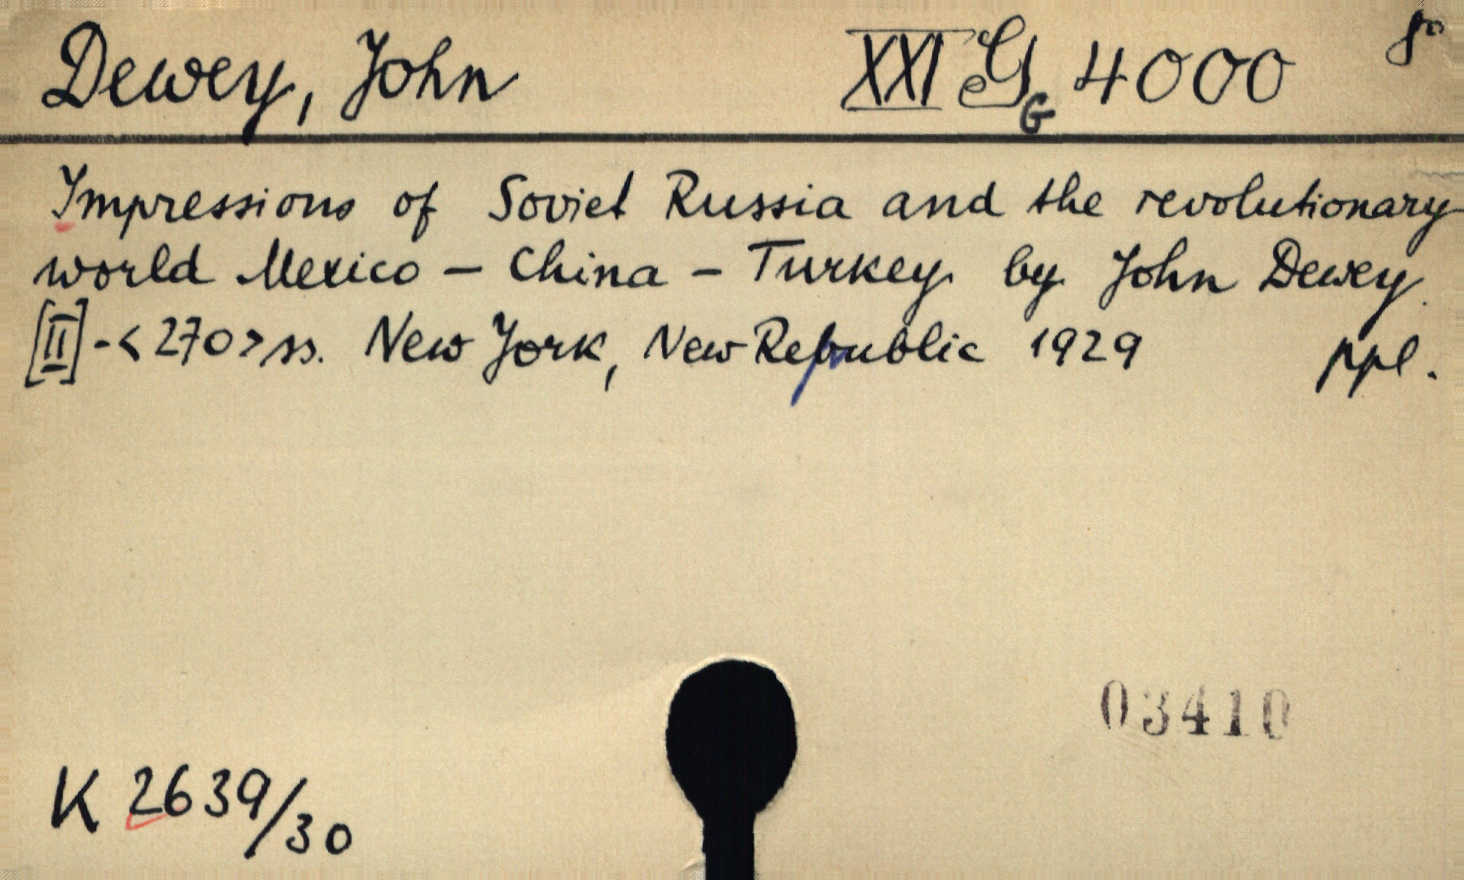 Dewey, John XXI G G 4000 8°
Impressions of Soviet Russia and the revolutionary
world Mexico - China - Turkey by John Dewey.
[II] - <270> ss. New York, New Republic 1929 ppl.
03410
K 2639/30